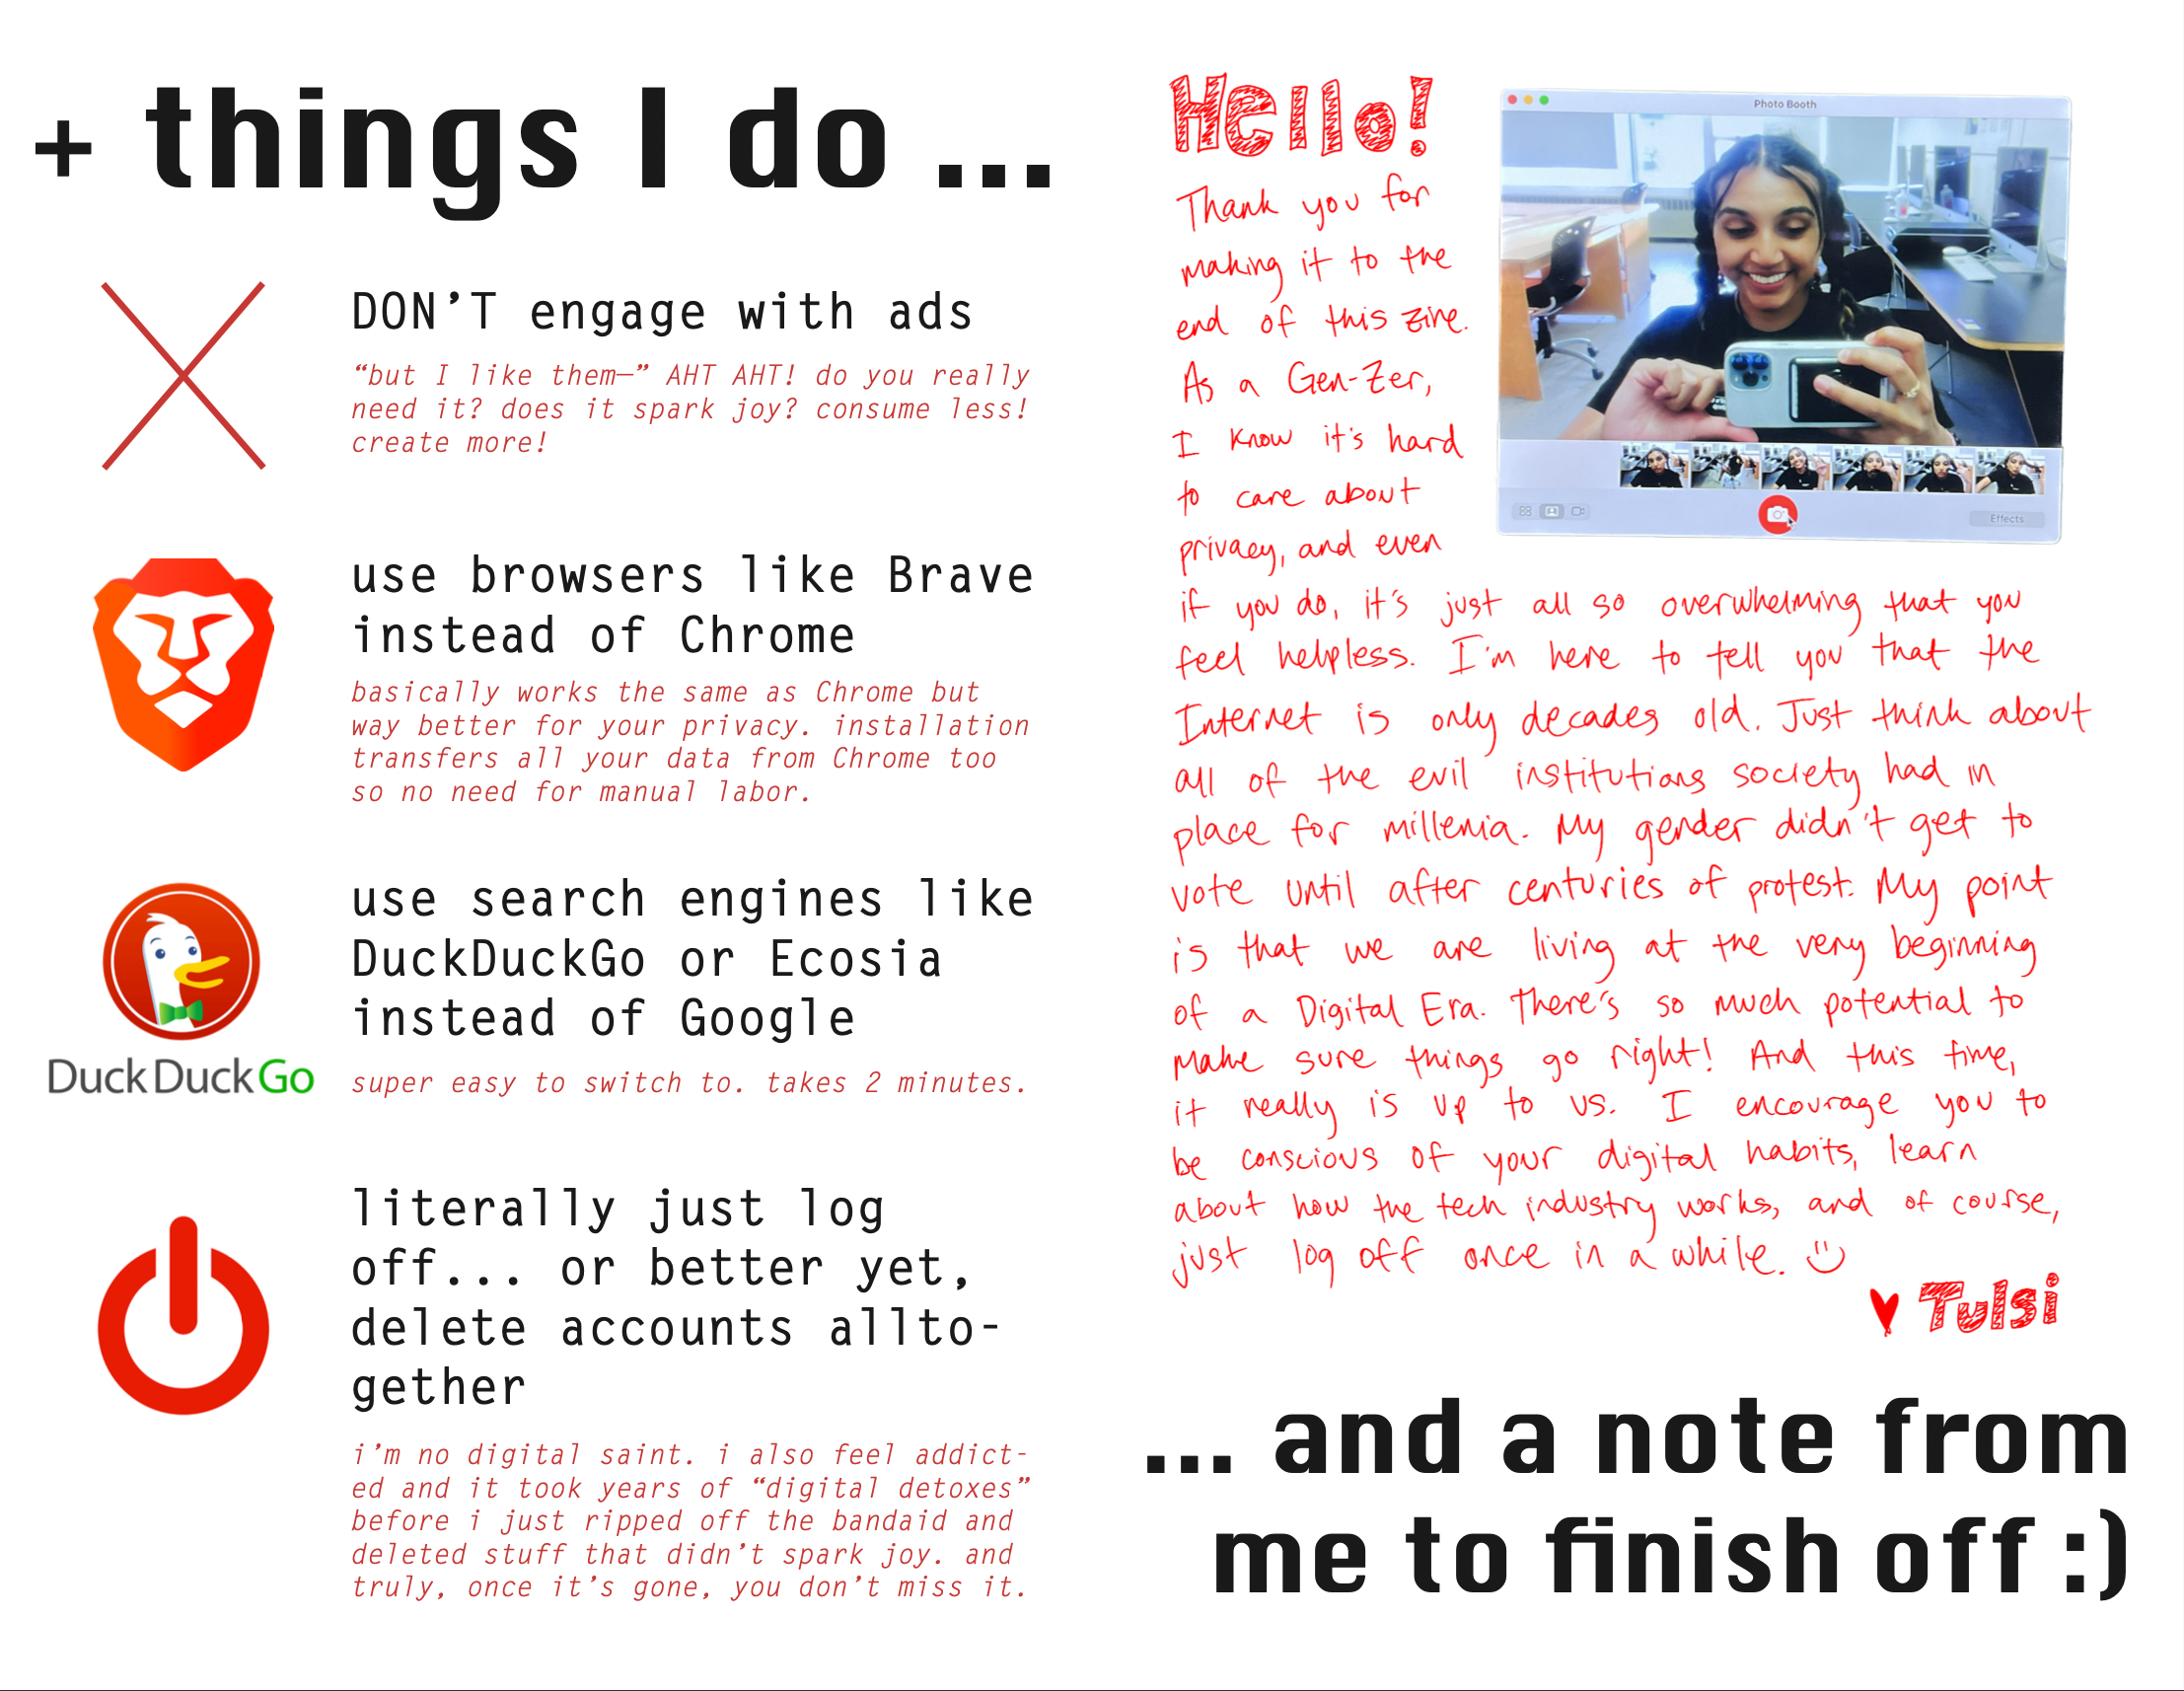 + things I do ...
DON’T engage with ads
“but I like them—” AHT AHT! do you really
need it? does it spark joy? consume less!
create more!
use browsers like Brave
instead of Chrome
basically works the same as Chrome but
way better for your privacy. installation
transfers all your data from Chrome too
so no need for manual labor.
DuckDuckGo
use search engines like
DuckDuckGo or Ecosia
instead of Google
super easy to switch to. takes 2 minutes.
literally just log
off... or better yet,
delete accounts allto-
gether
i’m no digital saint. i also feel addict-
ed and it took years of “digital detoxes”
before i just ripped off the bandaid and
deleted stuff that didn’t spark joy. and
truly, once it’s gone, you don’t miss it.
Hello!
Thank you for
making it to the
end of this zine.
As a Gen-Zer,
I know it's hard
to care about
privacy, and even
if you do, it's just all so overwhelming that you
feel helpless. I'm here to tell you that the
Internet is only decades old. Just think about
all of the evil institutions society had in
place for millenia. My gender didn't get to
vote until after centuries of protest. My point
is that we are living at the very beginning
of a Digital Era. There's so much potential to
make sure things go right! And this time,
it really is up to us. I encourage you to
be conscious of your digital habits, learn
about how the tech industry works, and of course,
just log off once in a while. :)
♥ Tulsi
Photo Booth
Effects
... and a note from
me to finish off :)